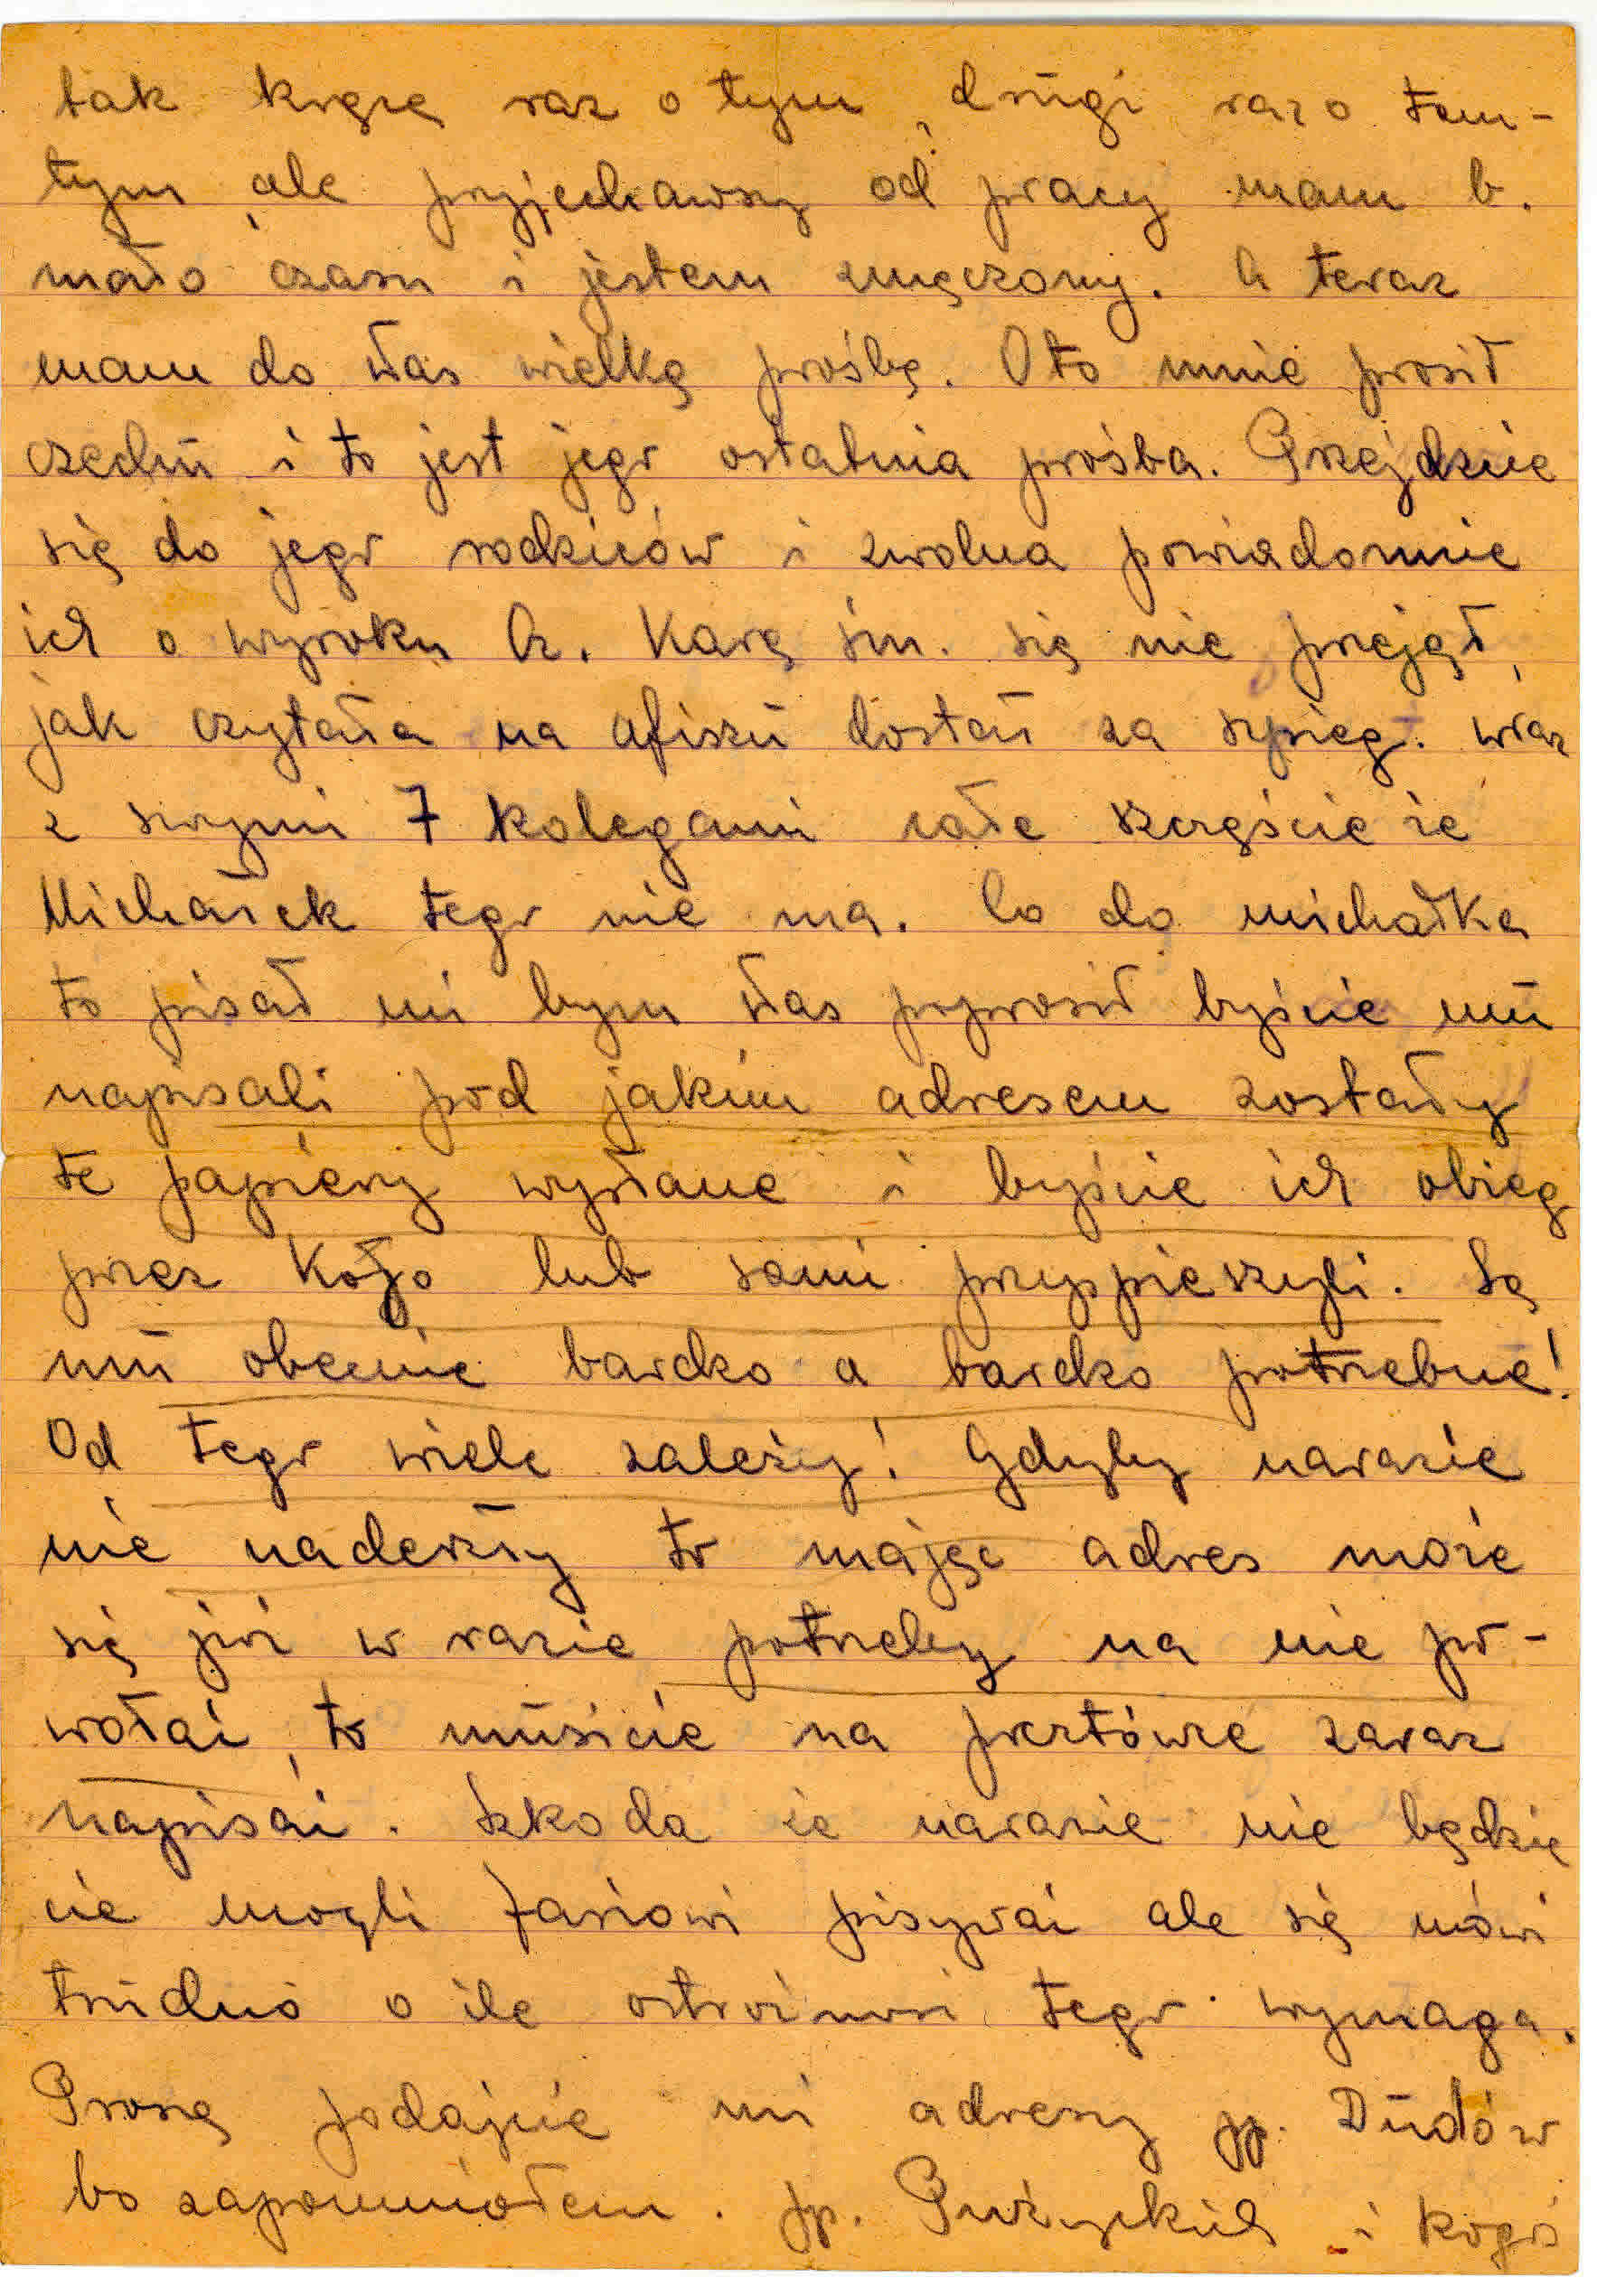 tak kręcę raz o tym, drugi raz o tam-
tym, ale przyjechawszy od pracy mam b.
mało czasu i jestem zmęczony. A teraz
mam do Was wielką prośbę. Oto mnie prosił
Czechu i to jest jego ostatnia prośba. Przejdzcie
się do jego rodziców i zwolna powiadomcie
ich o wyroku Cz. Karą śm. się nie przejął,
jak czytała na afiszu dostał za szpieg. wraz
z swymi 7 kolegami całe szczęście że
Michałek tego nie ma. Co do Michałka
to pisał mi bym Was poprosił byście mu
napisali pod jakim adresem zostały
te papiery wysłane i byście ich obieg
przez kogo lub sami przyspieszyli. Są
mu obecnie bardzo a bardzo potrzebne!
Od tego wiele zależy! Gdyby narazie
nie nadeszły to mając adres może
się już w razie potrzeby na nie po-
wołać, to musicie na pocztówce zaraz
napisać. Szkoda że narazie nie będzie
cie mogli Jasiowi pisywać ale się mówi
trudno o ile ostrożność tego wymaga.
Proszę podajcie mi adresy pp. Dudów
bo zapomniałem. pp. i kogoś